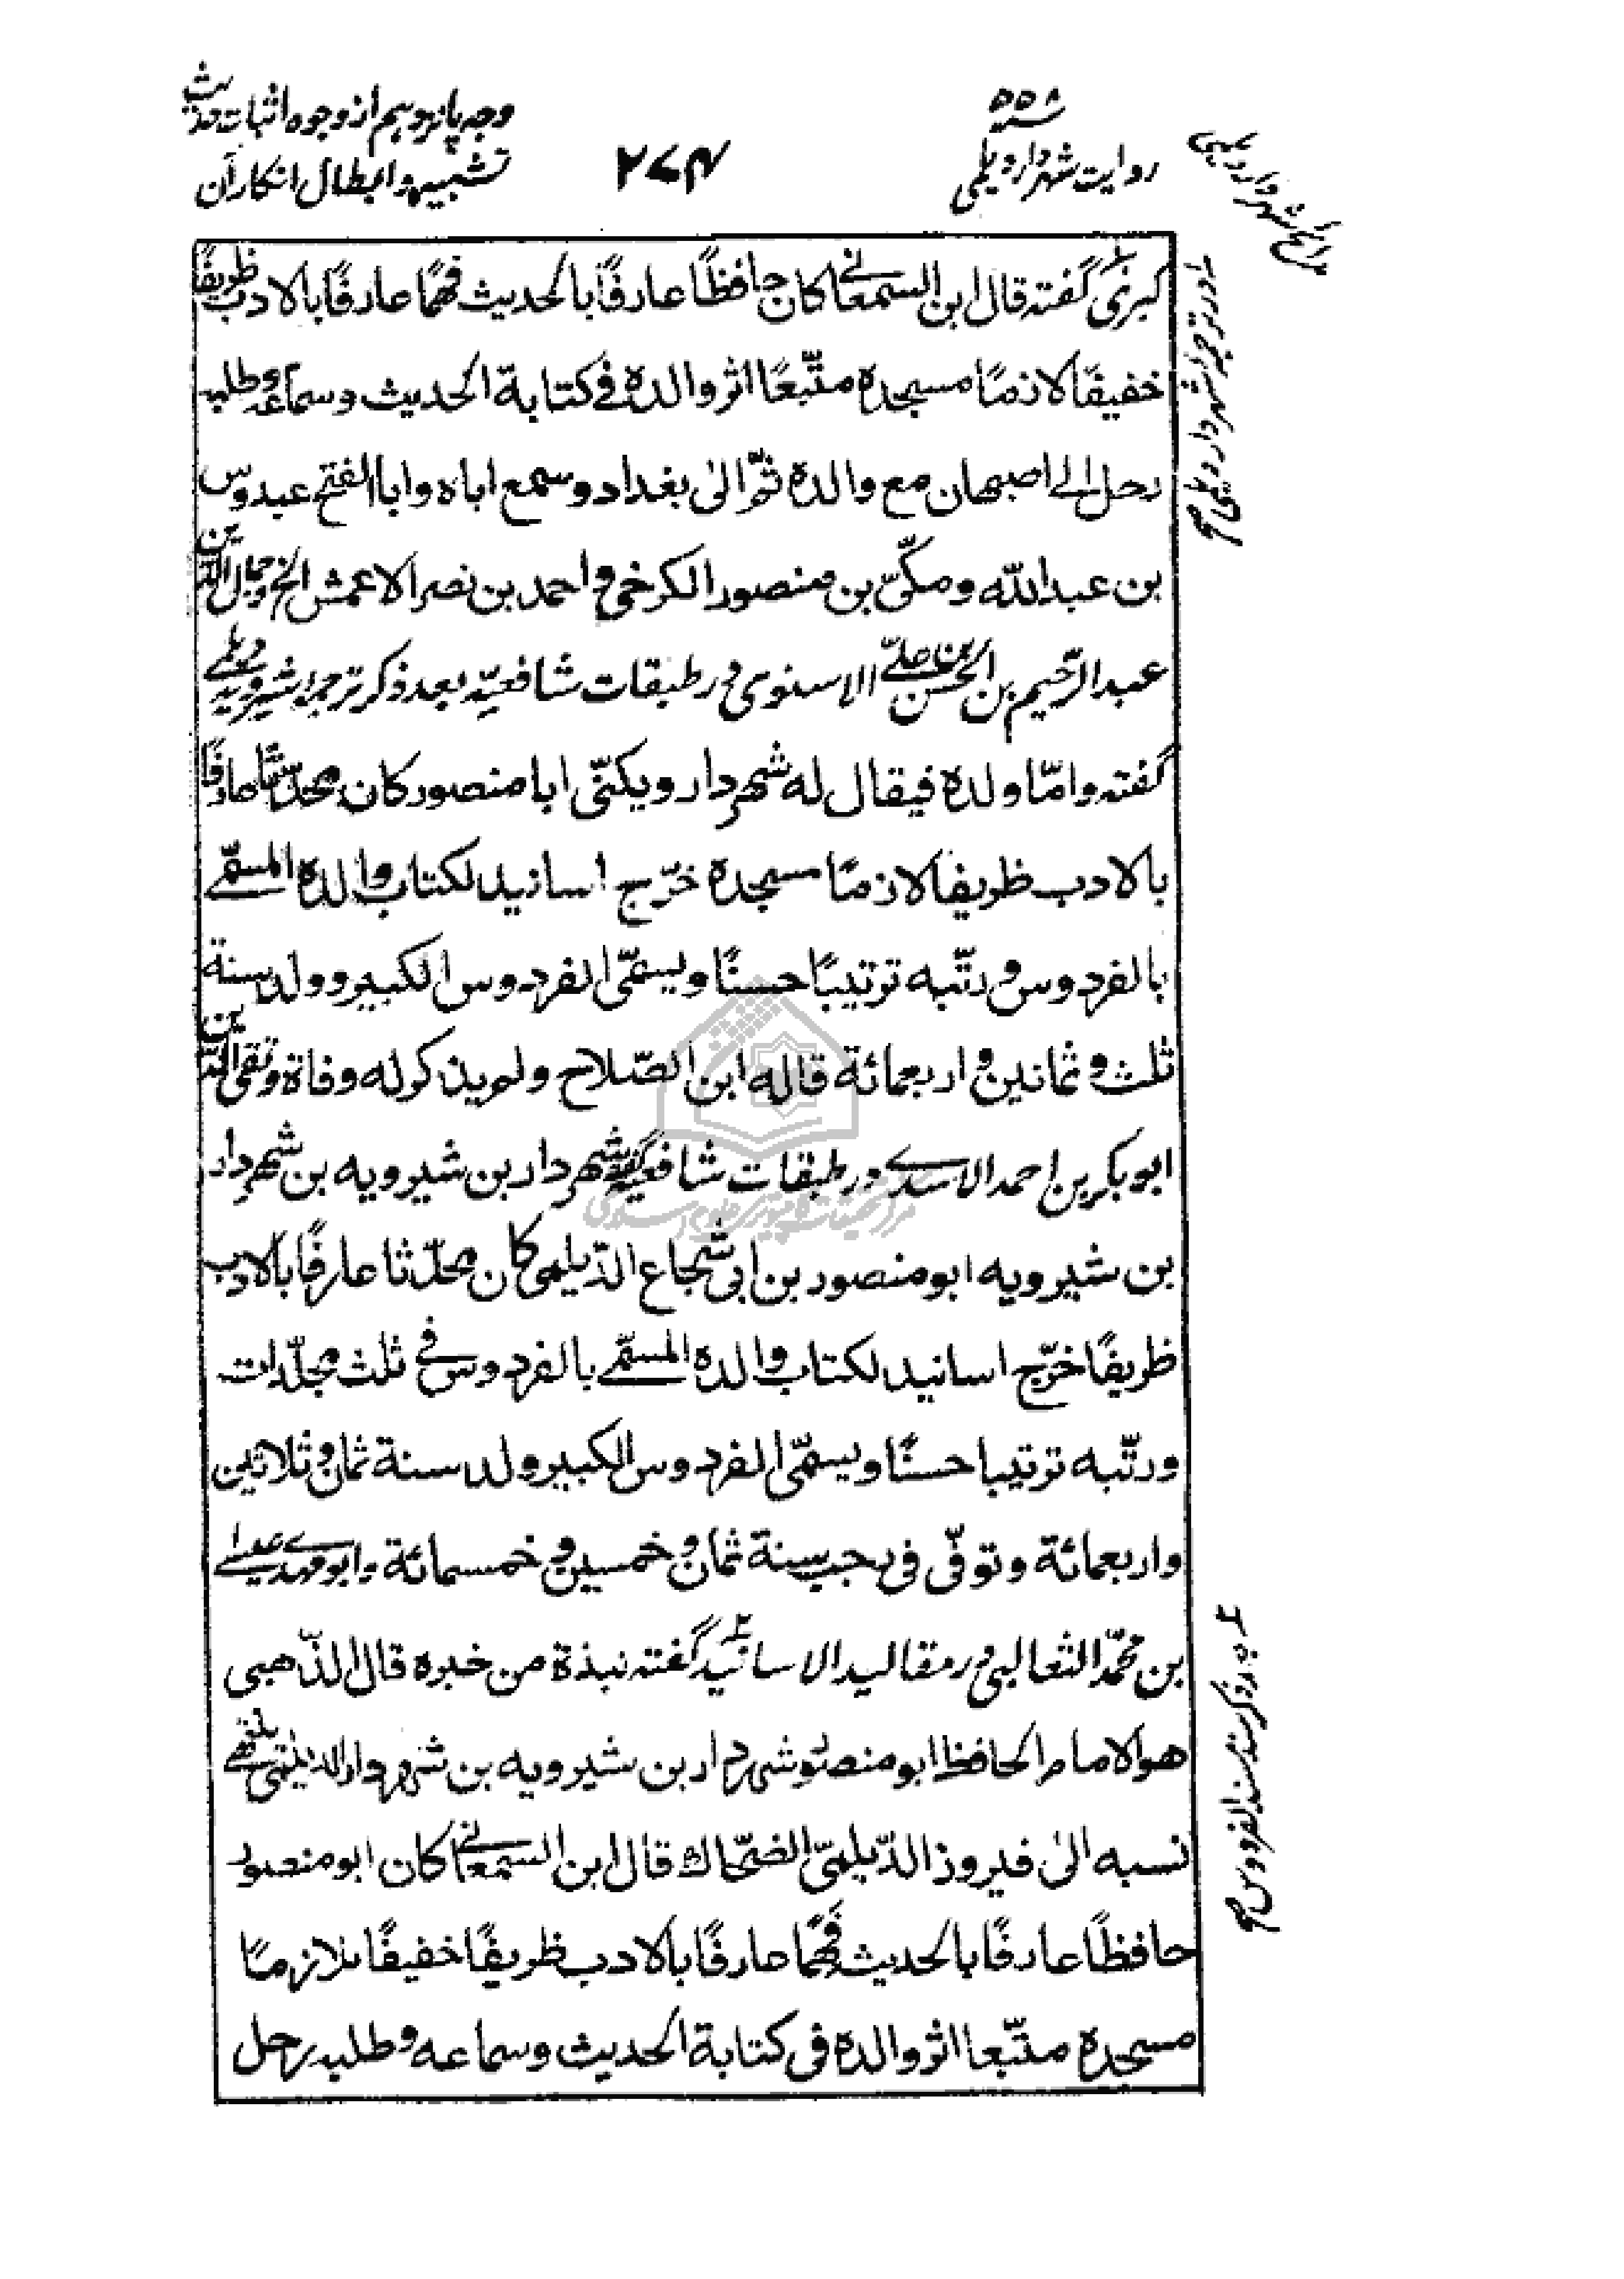 روایت شهردار دیلمی
۵۵۸
۲۷۴
وجه پانزدهم از وجوه اثبات حدیث
تشبیه و ابطال انکار آن
کبری گفته قال ابن السمعانی کان حافظًا عارفًا بالحدیث فهمًا عارفًا بالادب ظریفًا
خفیفًا لازمًا مسجده متّبعًا اثر والده فی کتابة الحدیث و سماعه و طلبه
رحل الی اصبهان مع والده ثمّ الیٰ بغداد و سمع اباه و ابا الفتح عبدوس
بن عبد اللّه و مکّیّ بن منصور الکرخی و احمد بن نصر الاعمش الخ و جمال الدّین
عبد الرّحیم بن الحسن بن علیّ الاسنوی در طبقات شافعیّه بعد ذکر ترجمه شیرویه دیلمی
گفته و امّا ولده فیقال له شهردار و یکنّی ابا منصور کان محدّثًا عارفًا
بالادب ظریفًا لازمًا مسجده خرّج اسانید لکتاب والده المسمّی
بالفردوس و رتّبه ترتیبًا حسنًا و یسمّی الفردوس الکبیر و ولد سنة
ثلث و ثمانین و اربعمائة قاله ابن الصّلاح و لم یذکر له وفاة و تقی الدّین
ابو بکر بن احمد الاسدی در طبقات شافعیّه گفته شهردار بن شیرویه بن شهردار
بن شیرویه ابو منصور بن ابی شجاع الدّیلمی کان محدّثا عارفًا بالادب
ظریفًا خرّج اسانید لکتاب والده المسمّی بالفردوس فی ثلث مجلّدات
و رتّبه ترتیبا حسنًا و یسمّی الفردوس الکبیر ولد سنة ثمان و ثلاثین
و اربعمائة و توفّی فی رجب سنة ثمان و خمسین و خمسمائة و ابو مهدی عیسی
بن محمّد الثعالبی در مقالید الاسانید گفته نبذة من خبره قال الذّهبی
هو الامام الحافظ ابو منصور شهردار بن شیرویه بن شهردار الدیلمی ینتهی
نسبه الیٰ فیروز الدّیلمیّ الضّحّاک قال ابن السمعانی کان ابو منصور
حافظًا عارفًا بالحدیث فهمًا عارفًا بالادب ظریفًا خفیفًا ملازمًا
مسجده متّبعا اثر والده فی کتابة الحدیث و سماعه و طلبه رحل